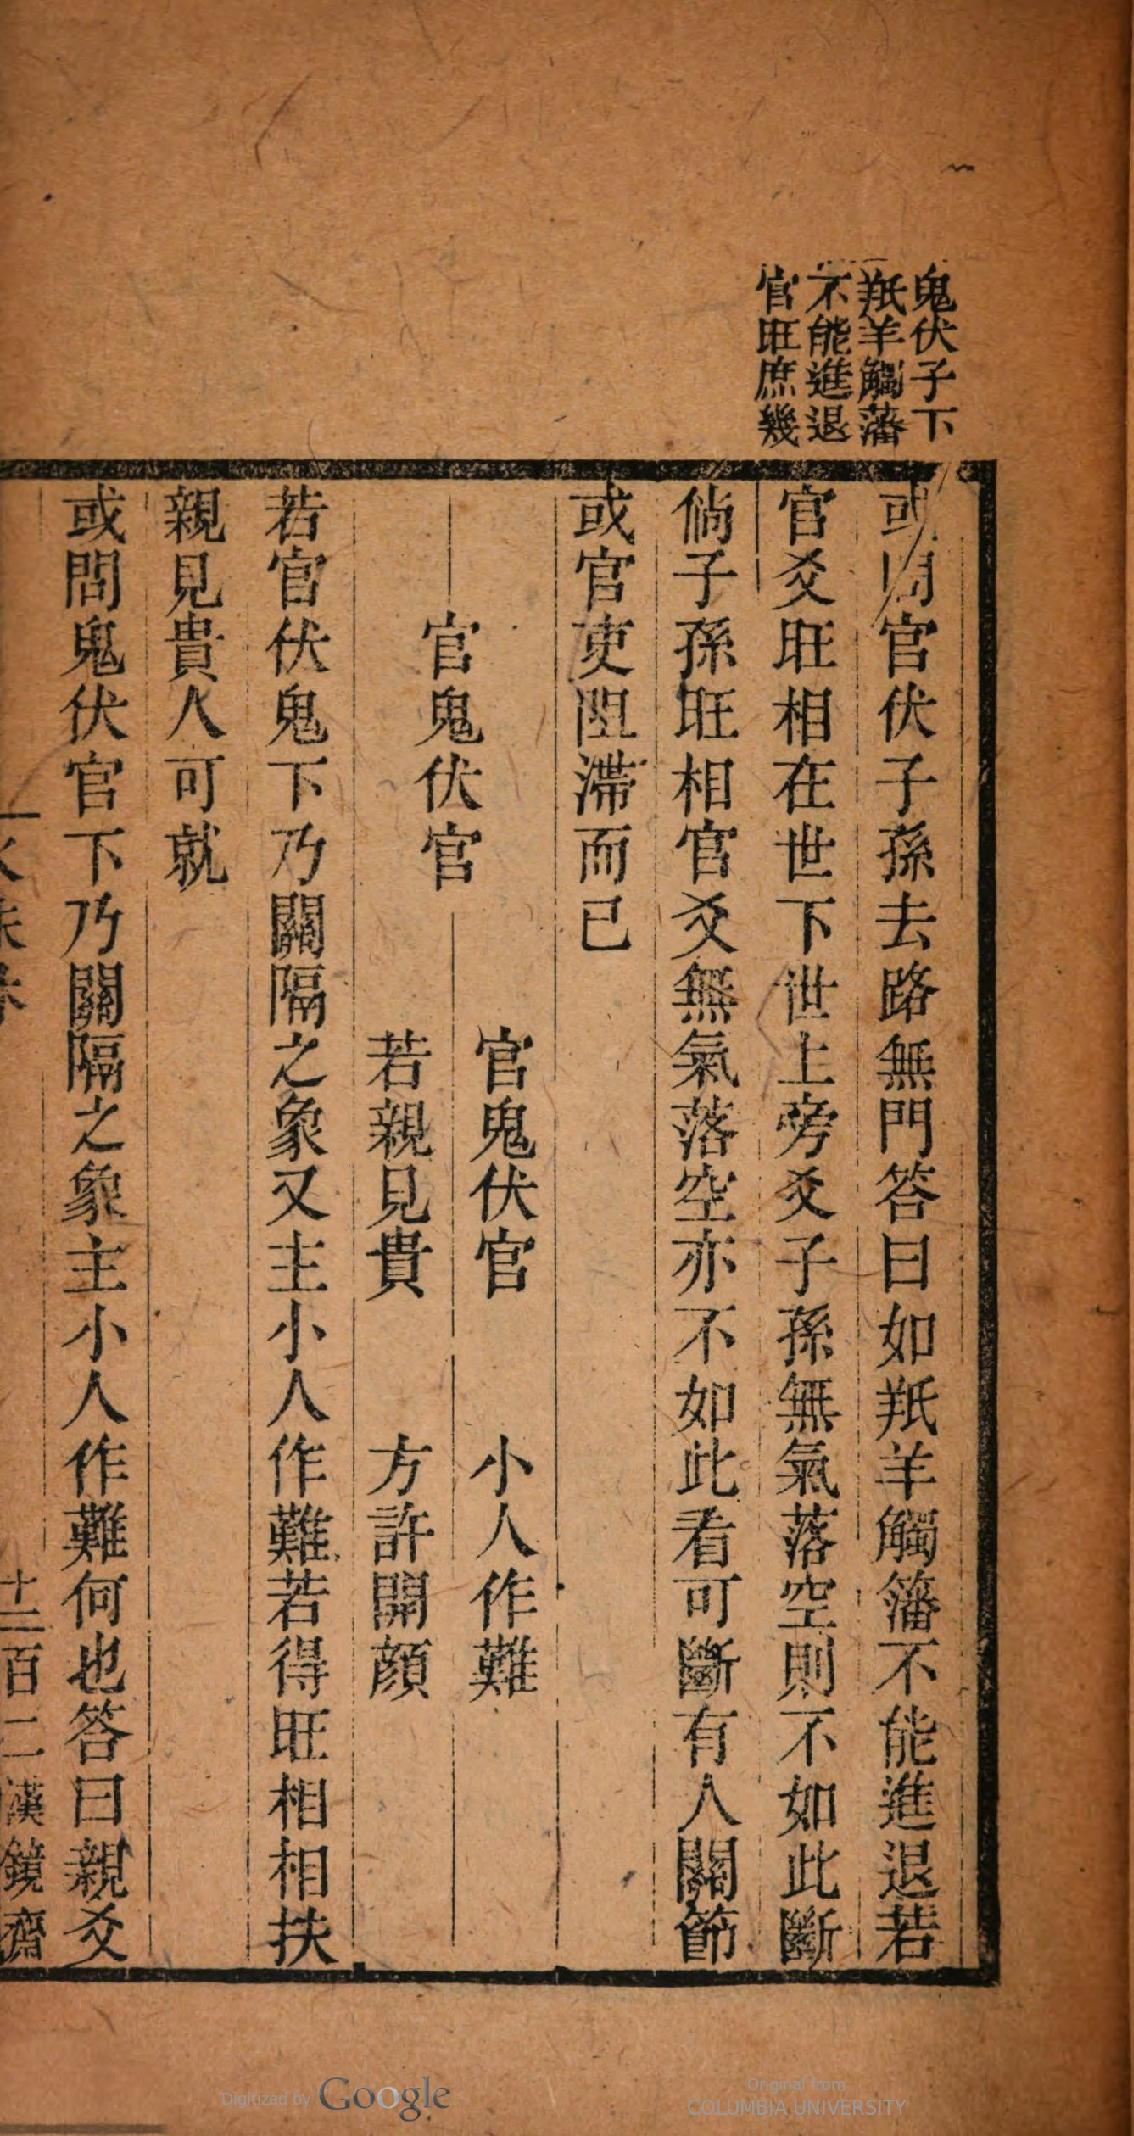 鬼伏子下
羝羊觸藩
不能進退
官旺庶幾
或問官伏子孫去路無門答曰如羝羊觸籓不能進退若
官爻旺相在世下世上旁爻子孫無氣落空則不如此斷
倘子孫旺相官爻無氣落空亦不如此看可斷有人關節
或官吏阻滯而已
官鬼伏官
官鬼伏官 小人作難
若親見貴 方許開顔
若官伏鬼下乃關隔之象又主小人作難若得旺相相扶
親見貴人可就
或問鬼伏官下乃關隔之象主小人作難何也答曰親爻
十三百二漢鏡齋
Digitized by Google
Original from
COLUMBIA UNIVERSITY